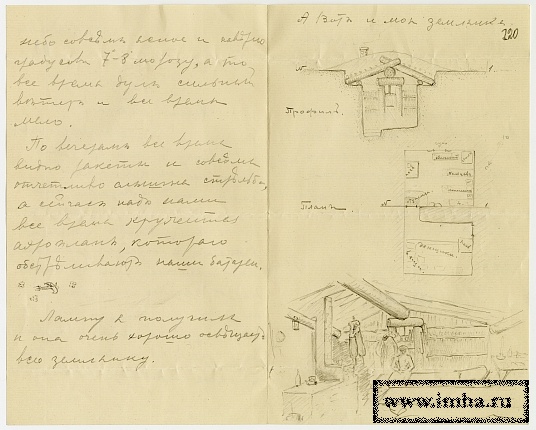 небо совсѣмъ ясное и
градусовъ 7°-8° морозу, а то
все время дулъ сильный
вѣтеръ и все время
мело.
По вечерамъ все время
видно ракеты и совсѣмъ
отчетливо слышна стрѣльба,
а сейчасъ надъ нами
все время крутится
аэропланъ, котораго
обстрѣливаютъ наши батареи.
Лампу я получилъ
и она очень хорошо освѣщаетъ
всю землянку.
А вотъ и моя землянка.
220
Профиль.
Планъ.
www.imha.ru